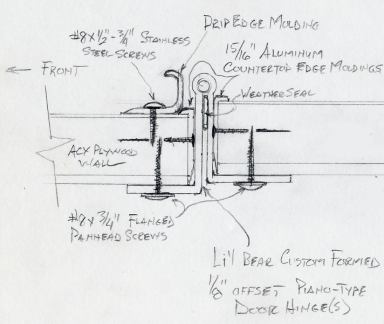 DRIP EDGE MOLDING
#8 x 1/2"-3/4" STAINLESS
STEEL SCREWS
15/16" ALUMINUM
COUNTERTOP EDGE MOLDINGS
← FRONT
WEATHERSEAL
ACX PLYWOOD
WALL
#8 x 3/4" FLANGED
PANHEAD SCREWS
LI'L BEAR CUSTOM FORMED
1/8" OFFSET PIANO-TYPE
DOOR HINGE(S)